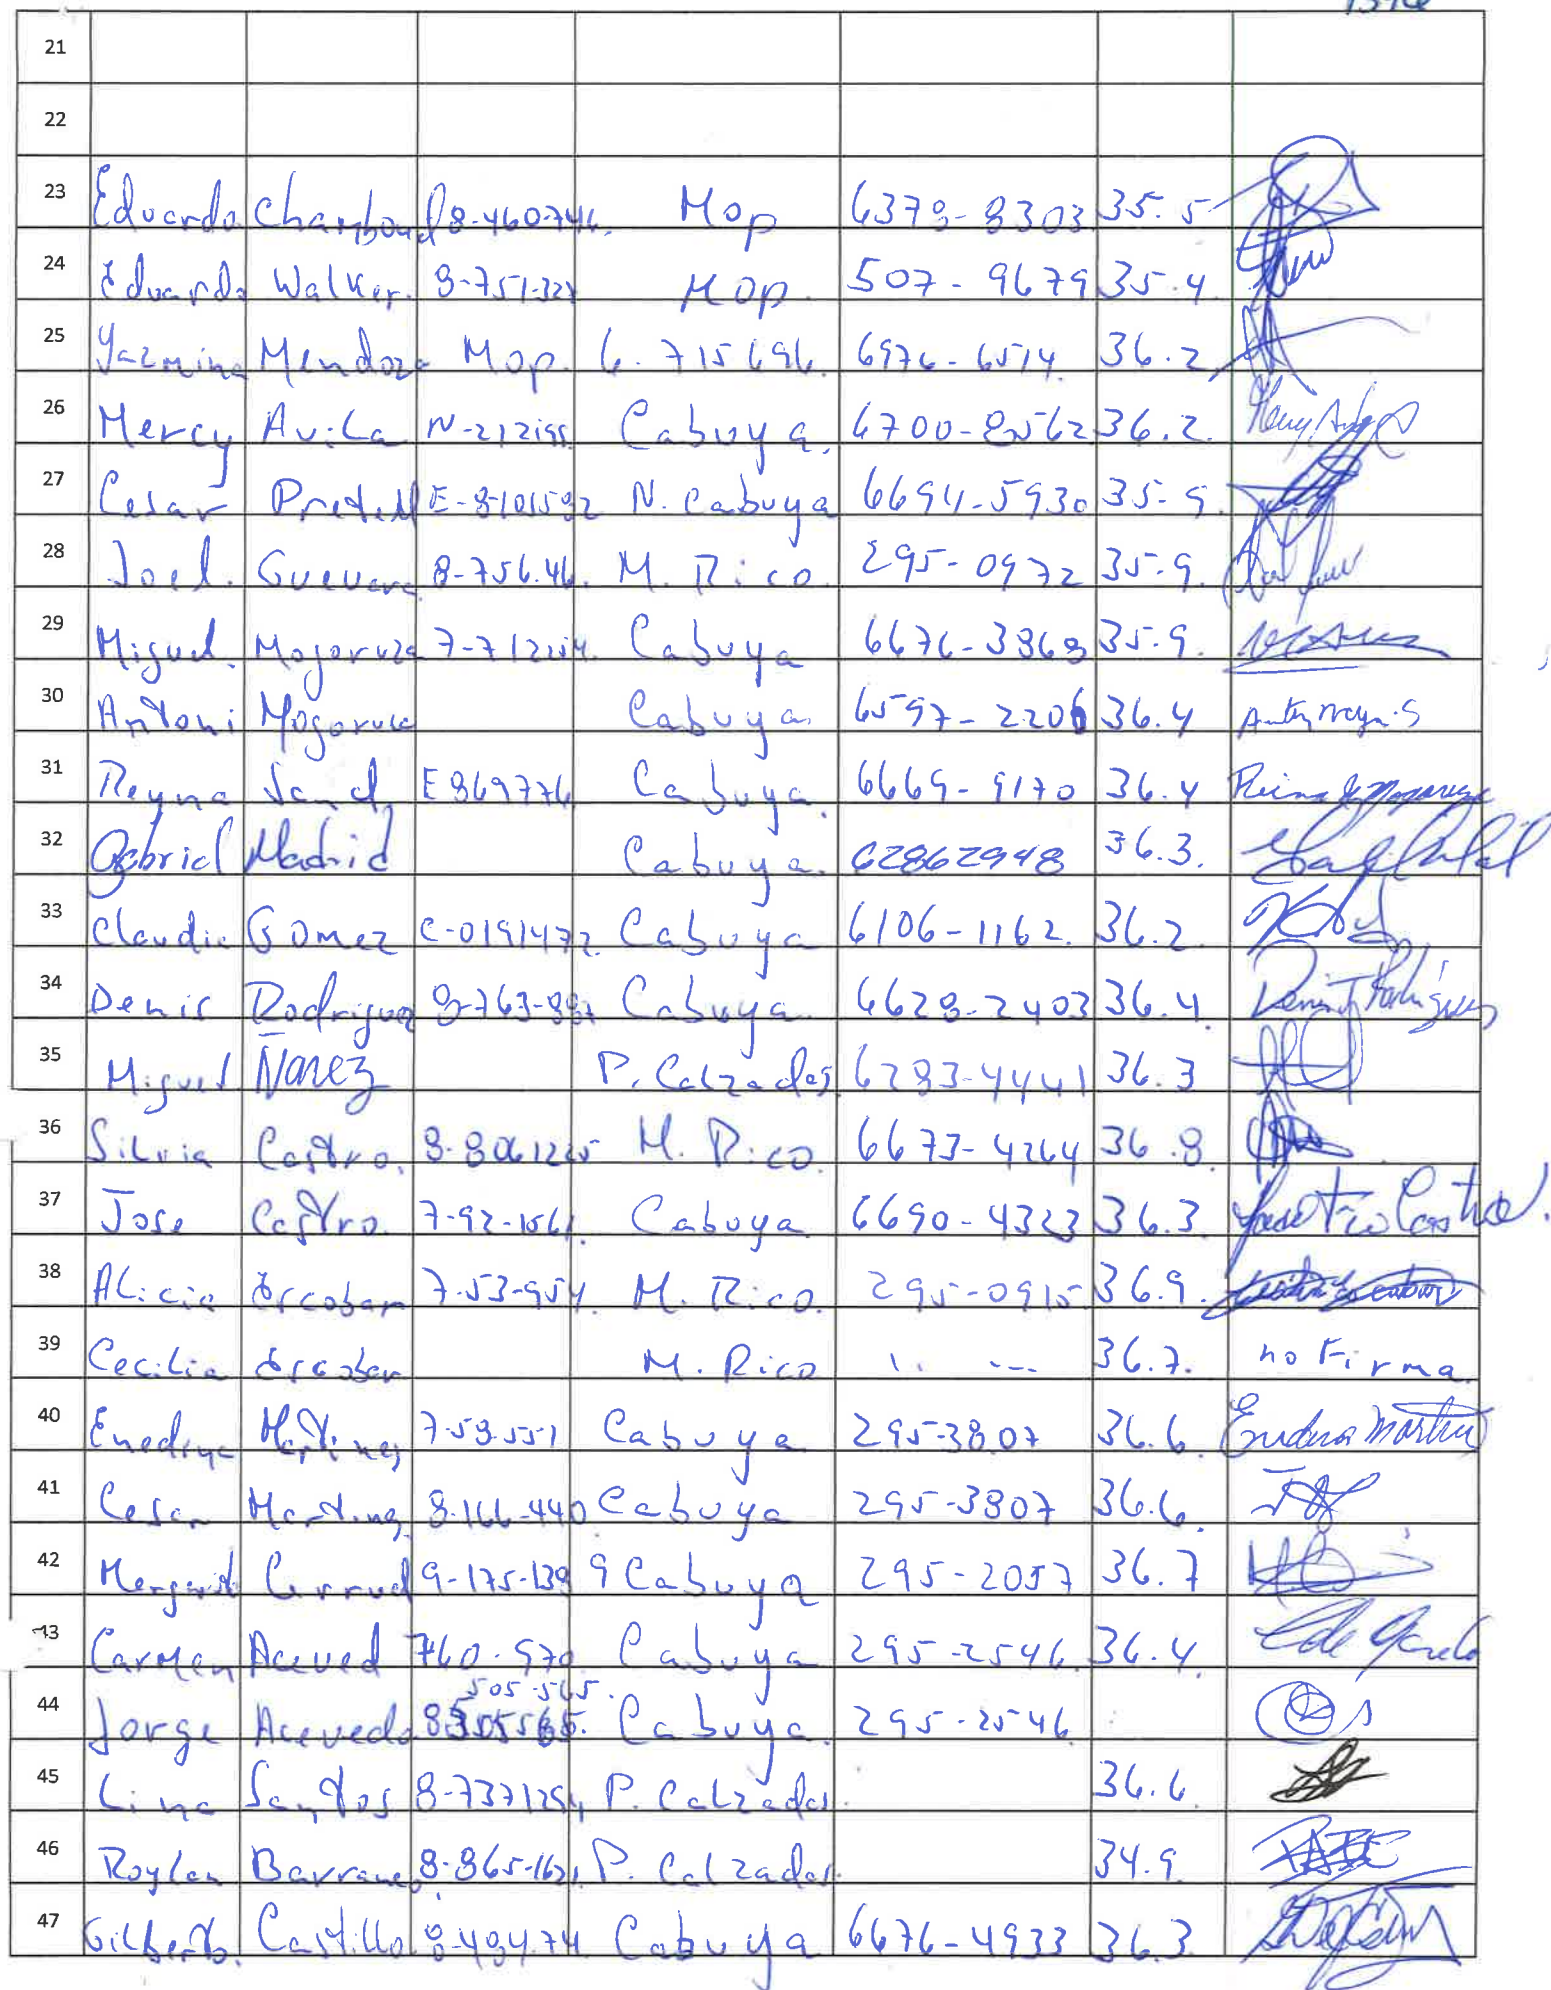 21
22
23 Eduardo 8-460-746. Mop 6379-8303 35.5
24 Eduardo Walker. 8-751-327 Mop. 507-9679 35.4
25 Yazmina Mendoza Mop. 6.715 696. 6976-6514. 36.2
26 Mercy Avila Cabuya. 36.2.
27 Cesar Pretell E-8-101592 N. Cabuya 6694-5930 35.9.
28 Joel. Guevara 8-756.46. M. Rico. 295-0972 35.9.
29 Miguel. Mogoruza Cabuya 6676-3868 35.9.
30 Antoni Mogoruza Cabuya. 6597-2206 36.4
31 Reyna E869776 Cabuya. 6669-9170 36.4
32 Gabriel Madrid Cabuya. 62862948 36.3.
33 Claudia Gomez C-0191472. Cabuya 6106-1162. 36.2.
34 Denis Rodriguez Cabuya 6628-2403 36.4.
35 Miguel Ñanez P. Calzadas 6283-4441 36.3
36 Silvia Castro. M. Rico. 6673-4264 36.8.
37 Jose Castro. 7-92-1061. Cabuya 6690-4323 36.3.
38 Alicia Escobar 7-53-954. M. Rico. 295-0915 36.9.
39 Cecilia Escobar M. Rico 36.7. no Firma.
40 Enedina Martinez 7-58-551 Cabuya 295-3807 36.6. Enedina Martinez
41 Cesar Martinez 8-166-440 Cabuya 295-3807 36.6.
42 Margarita Cerrud 9-175-139 9 Cabuya 295-2057 36.7
43 Carmen Aceved 760-970 Cabuya 295-2546. 36.4.
505-565.
44 Jorge Acevedo Cabuya. 295-2546
45 Lina Santos P. Calzadas. 36.6.
46 Roylan P. Calzadas. 34.9.
47 Gilberto. Castillo. 8-484-74 Cabuya 6676-4933 36.3.